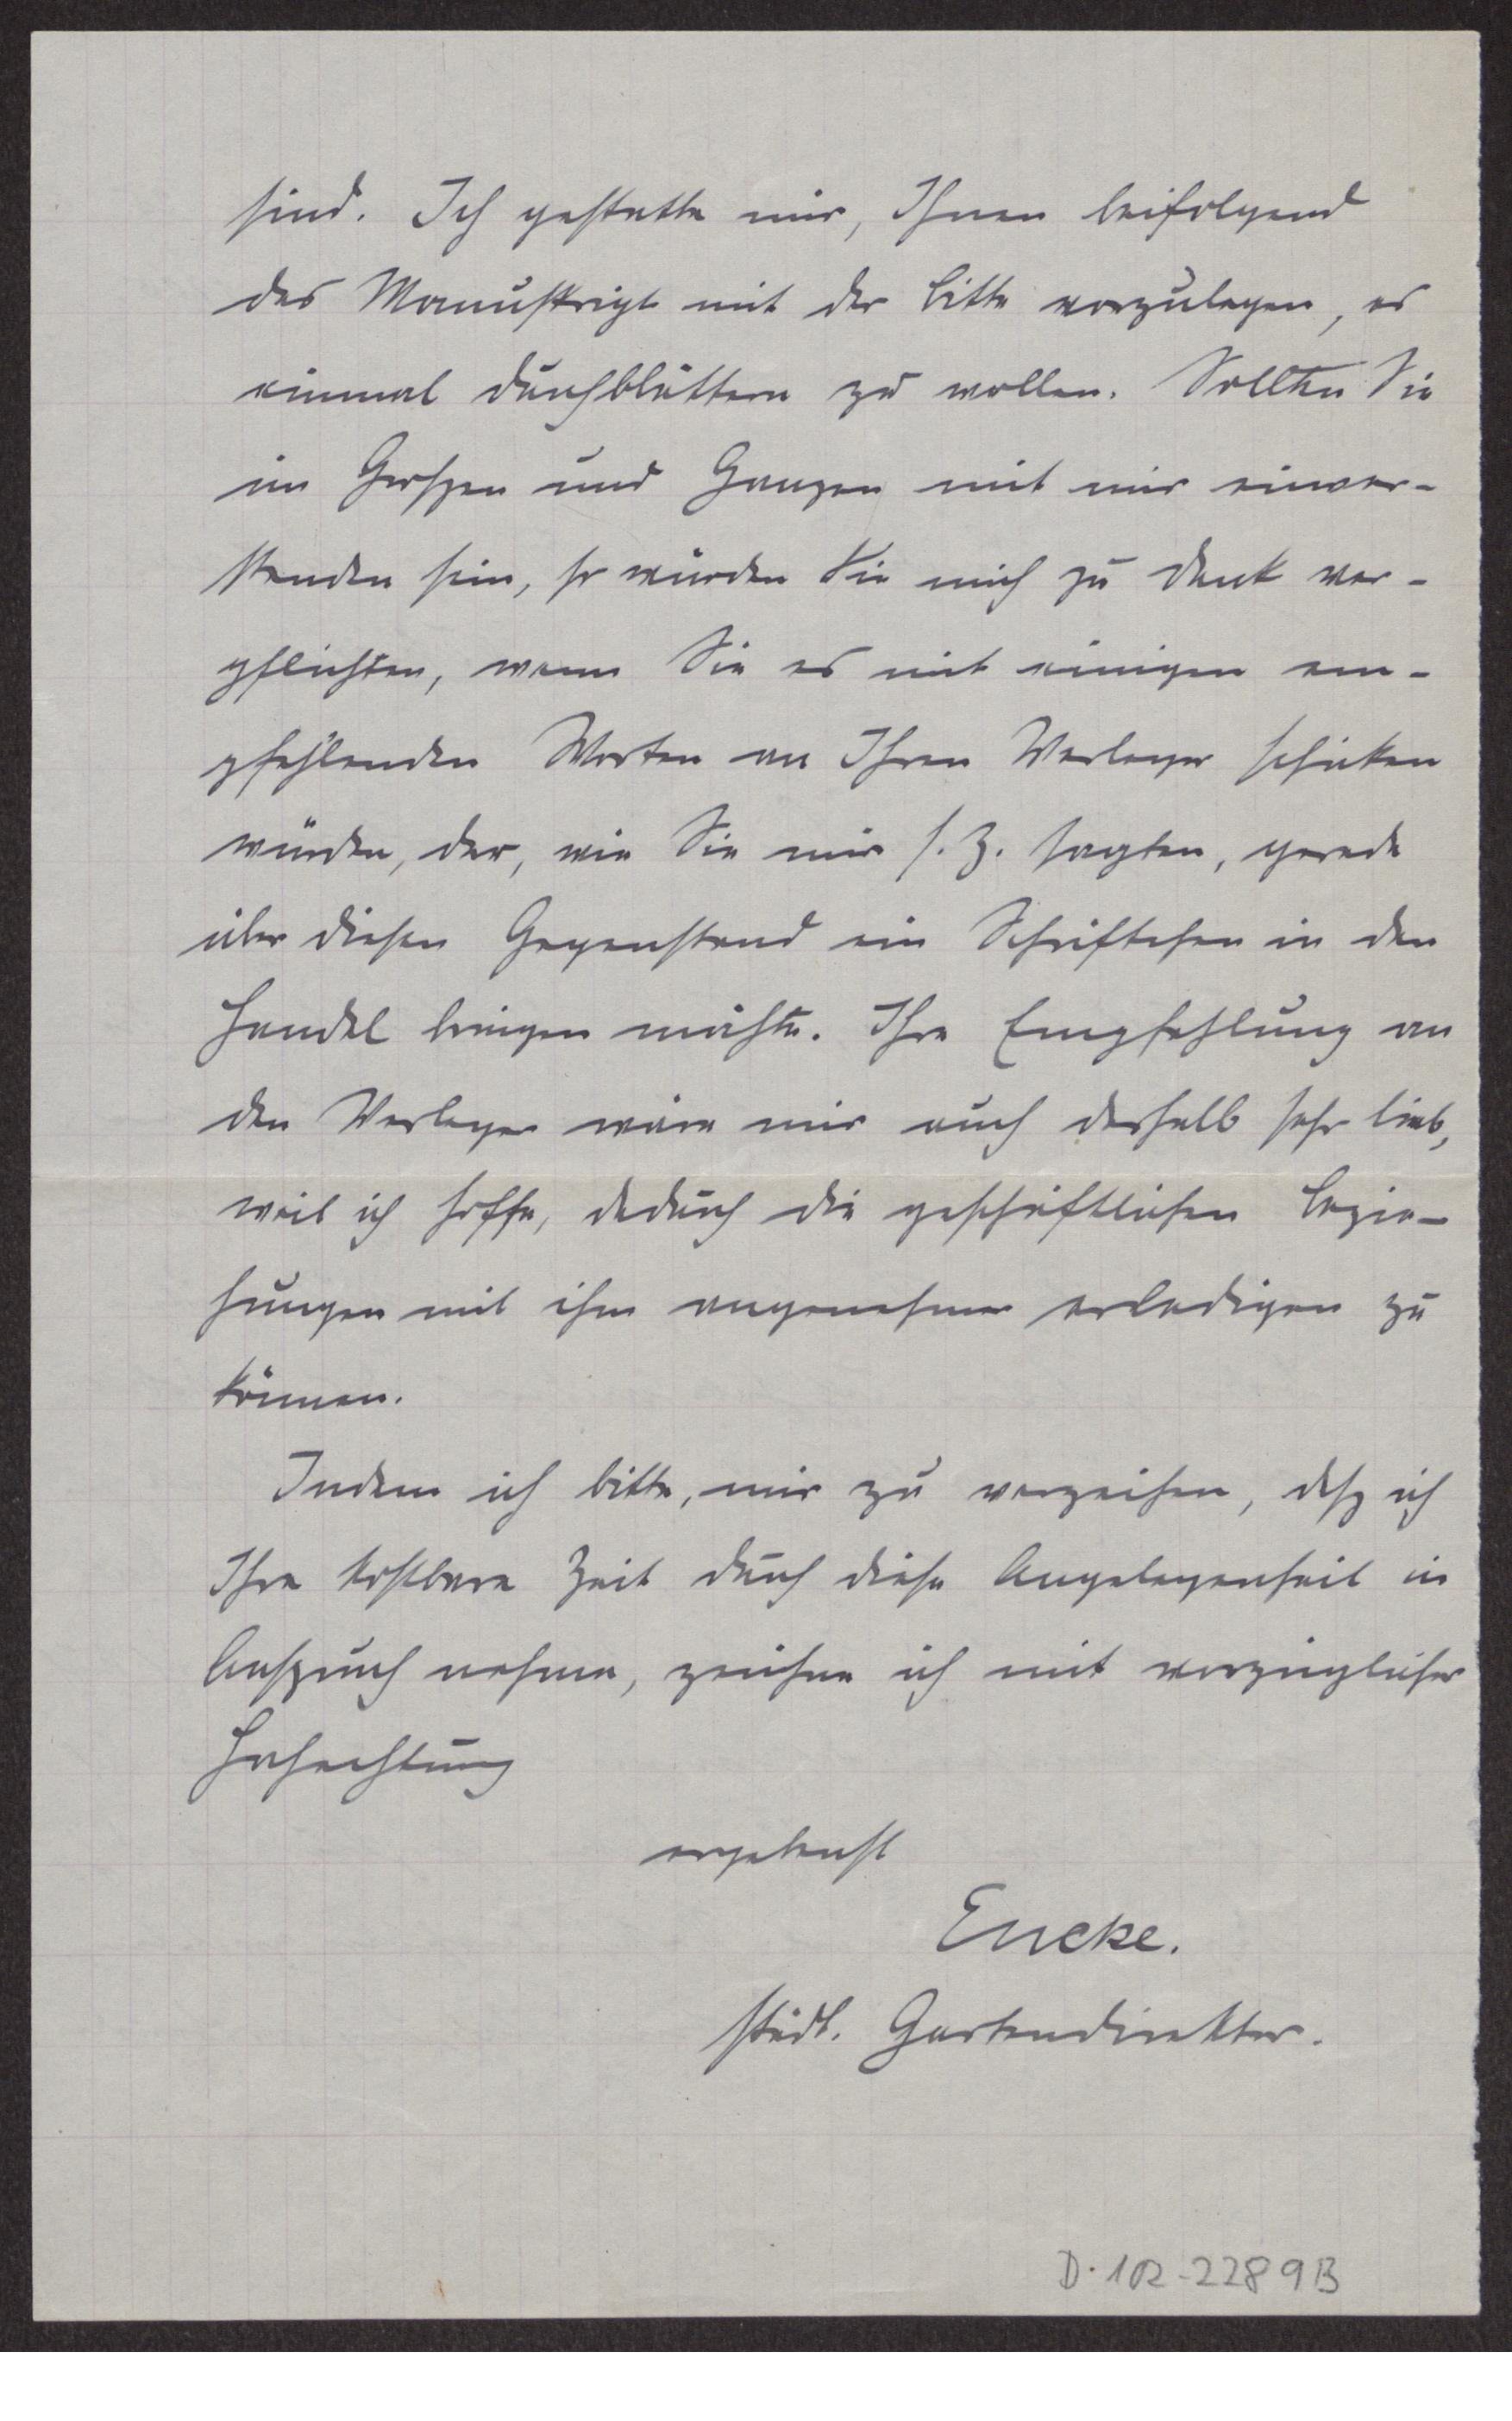 sind. Ich gestatte mir, Ihnen beifolgend
das Manuskript mit der Bitte vorzulegen, es
einmal durchblättern zu wollen. Sollten Sie
im Großen und Ganzen mit mir einver-
standen sein, so würden Sie mich zu Dank ver-
pflichten, wenn Sie es mit einigen em-
pfehlenden Worten an Ihren Verleger schicken
würden, der, wie Sie mir s. Z. sagten, gerade
über diesen Gegenstand ein Schriftchen in den
Handel bringen möchte. Ihre Empfehlung an
den Verleger wäre mir auch deshalb sehr lieb,
weil ich hoffe, dadurch die geschäftlichen Bezie-
hungen mit ihm angenehmer erledigen zu
können.
Indem ich bitte, mir zu verzeihen, daß ich
Ihre kostbare Zeit durch diese Angelegenheit in
Anspruch nehme, zeichne ich mit vorzüglicher
Hochachtung
ergebenst
Encke.
städt. Gartendirektor.
D. 102-2289B